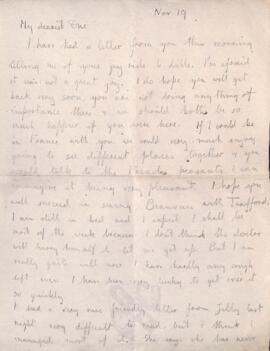 Nov 19
My dearest
I have had a letter from you this morning
telling me of your joy ride to Lille. I'm afraid
it was not a great joy. I do hope you will get
back very soon you are not doing any thing of
importance there & we should both be so
much happier if you were here. If I could be
in France with you we could very much enjoy
going to see different places together & you
could talk to the peasants I can
imagine it being very pleasant. I hope you
will succeed in seeing Beauvais with Trafford.
I am still in bed and I expect I shall be
most of the week because I don't think the doctor
will bring himself to let me get up. But I am
really quite well now I have hardly any cough
left even I have been very lucky to get over it
so quickly
I had a very nice friendly letter from last
night very difficult to read but I think I
managed most of it. She says she has never